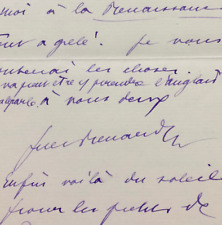 moi à la Renaissance
tout a gelé! Je vous
les choses.
peut être y prendre l'anglais
à nous deux
Jules Renard
Enfin voilà du soleil
pour les petits de